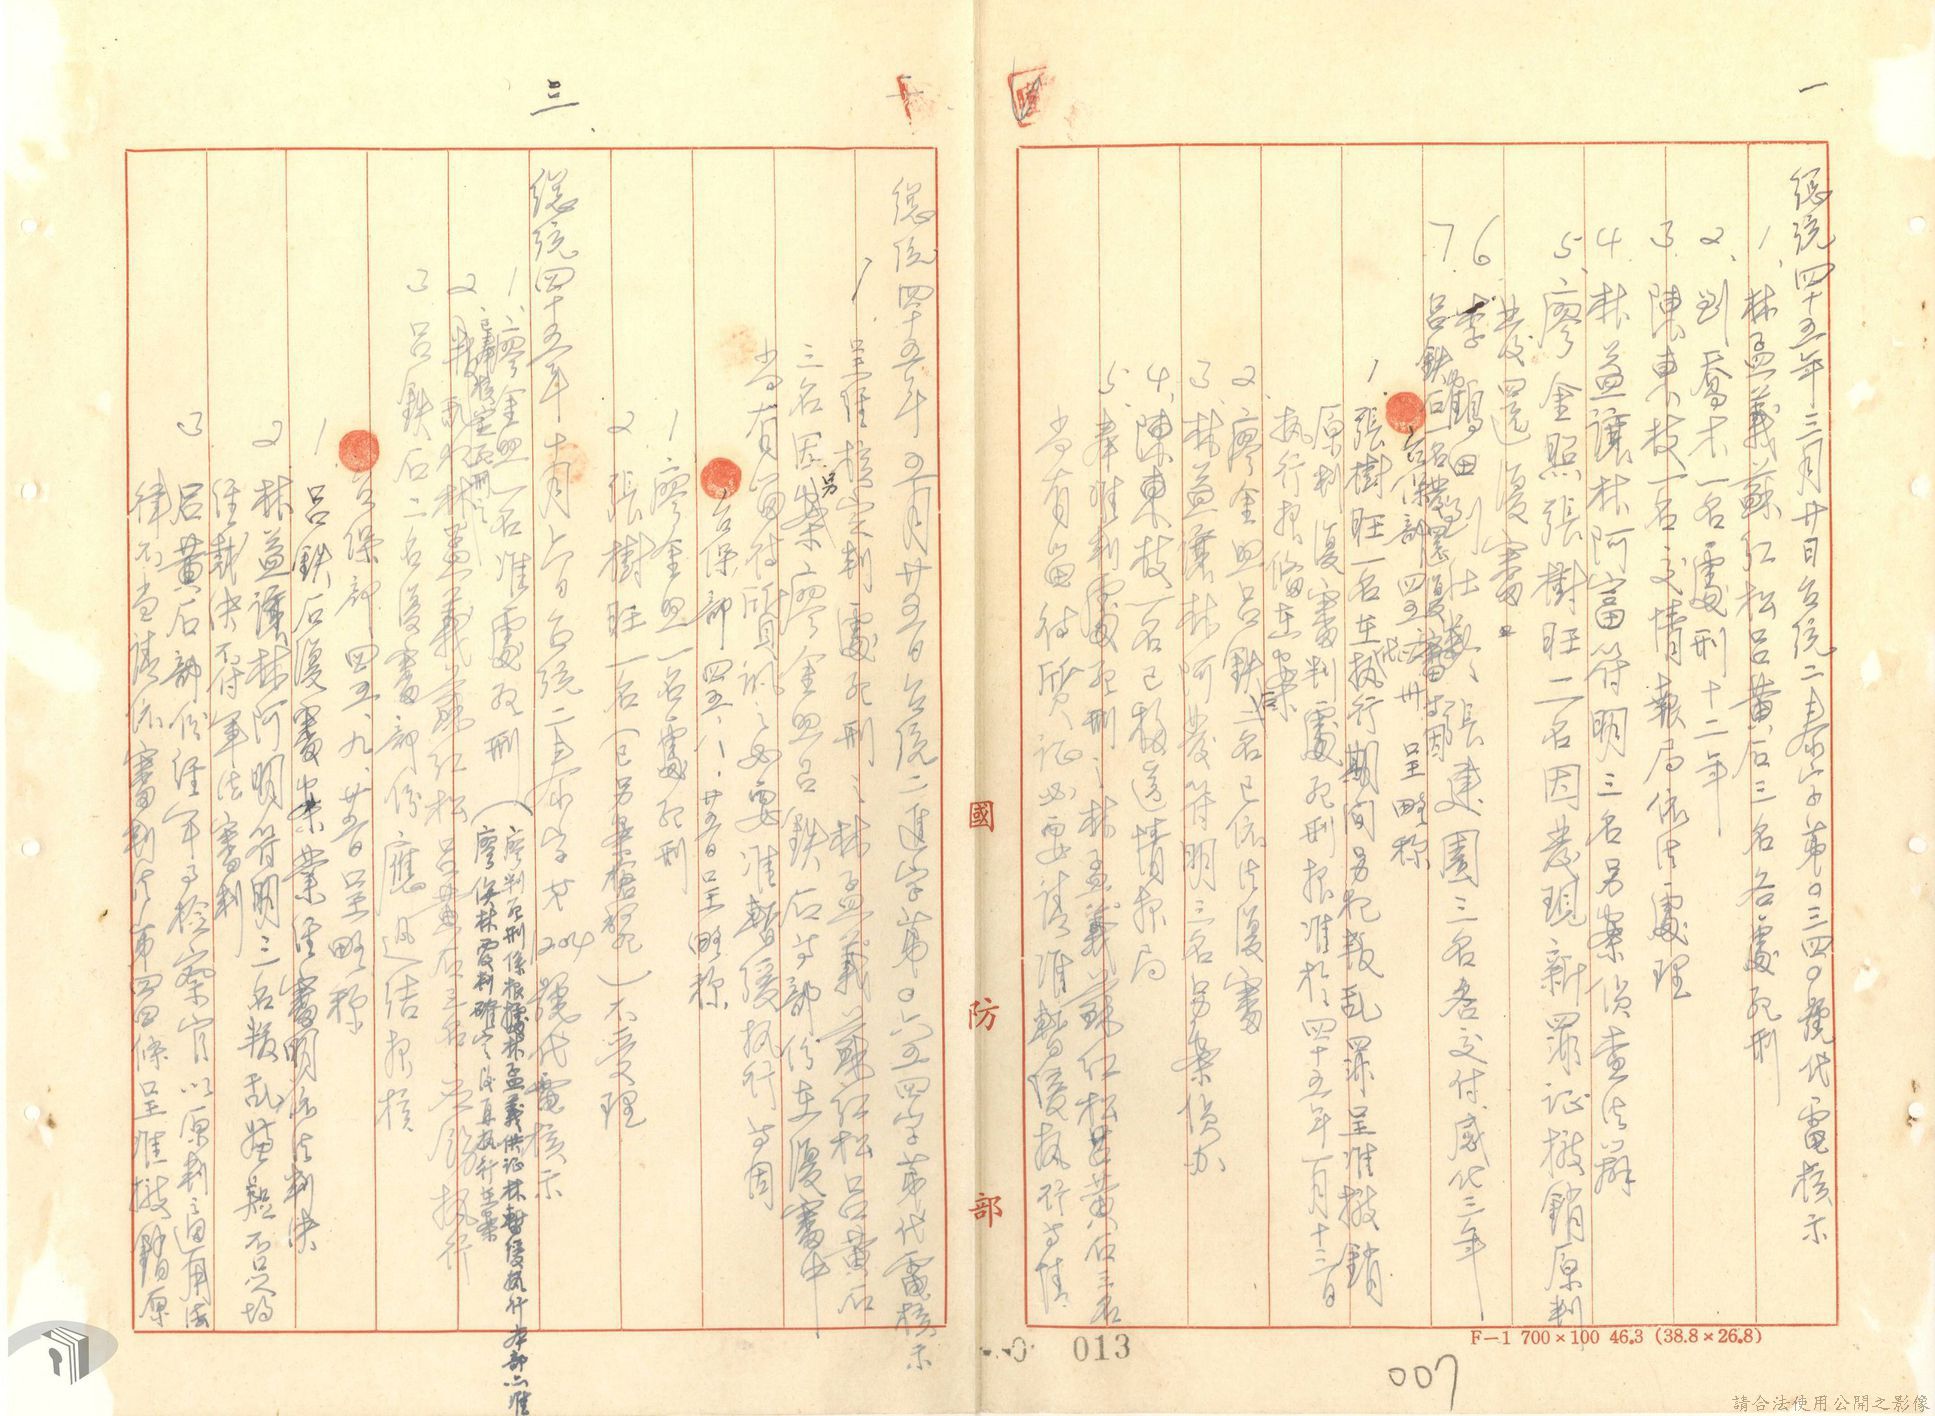 一
總統四十五年三月廿日台統二泰字第〇三四〇號代電核示
1、林孟義蘇紅松呂黃石三名各處死刑
2、劉喬木一名處刑十二年
3、陳東枝一名交情報局依法處理
4、林益謙林阿富符明三名另案偵查法辦
5、廖金照張樹旺二名因發現新罪証撤銷原判
發回復審
6、李鶴田劉壯張建園三名各交付感化三年
7、呂鉄石一名
台保部四五 卅 呈略称
1、張樹旺一名在執行期间另犯叛乱罪呈准撤銷
原判復審判處死刑報准於四十五年一月十三日
执行报偹在案
2、廖金照呂鉄石二名已依法復審
3、林益謙林阿發符明三名另案偵办
4、陳東枝一名已移送情报局
5、奉准判處死刑之林孟義蘇红松呂黃石三名
尚有留待質証必要請准暫緩执行等情
總統四十五年五月廿五日台統二進字第〇六五四字第代電核示
1、呈經核定判處死刑之林孟義蘇红松呂黃石
三名因另案廖金照呂鉄石等部份在復審中
尚有留待質訊之必要准暫緩执行等因
台保部四五、八、廿五日呈略称
1 廖金照一名處死刑
2 張樹旺一名(已另案槍斃)不受理
三
總統四十五年十月六日台統二泰字第1204號代電核示
1、廖金照一名准處死刑
(廖判死刑係根據林孟義供証林暫緩执行本部亦准
廖俟林覆判確定後再执行並案
2、已奉核定死刑之叛乱犯林孟義蘇红松呂黃石三名应飭执行
3 呂鉄石一名復審部份應迅迅结报核
台保部四五、九、廿五日呈略称
1 呂鉄石復審案業経審明依法判决
2 林益謙林阿明符明三名叛乱嫌疑不足
経裁决不付軍法審判
3 呂黃石部份経軍事检察官以原判之適用法
律不当請依審判法第四四條呈准撤銷原
國防部
F-1 700×100 46.3 (38.8×26.8)
013
007
請合法使用公開之影像